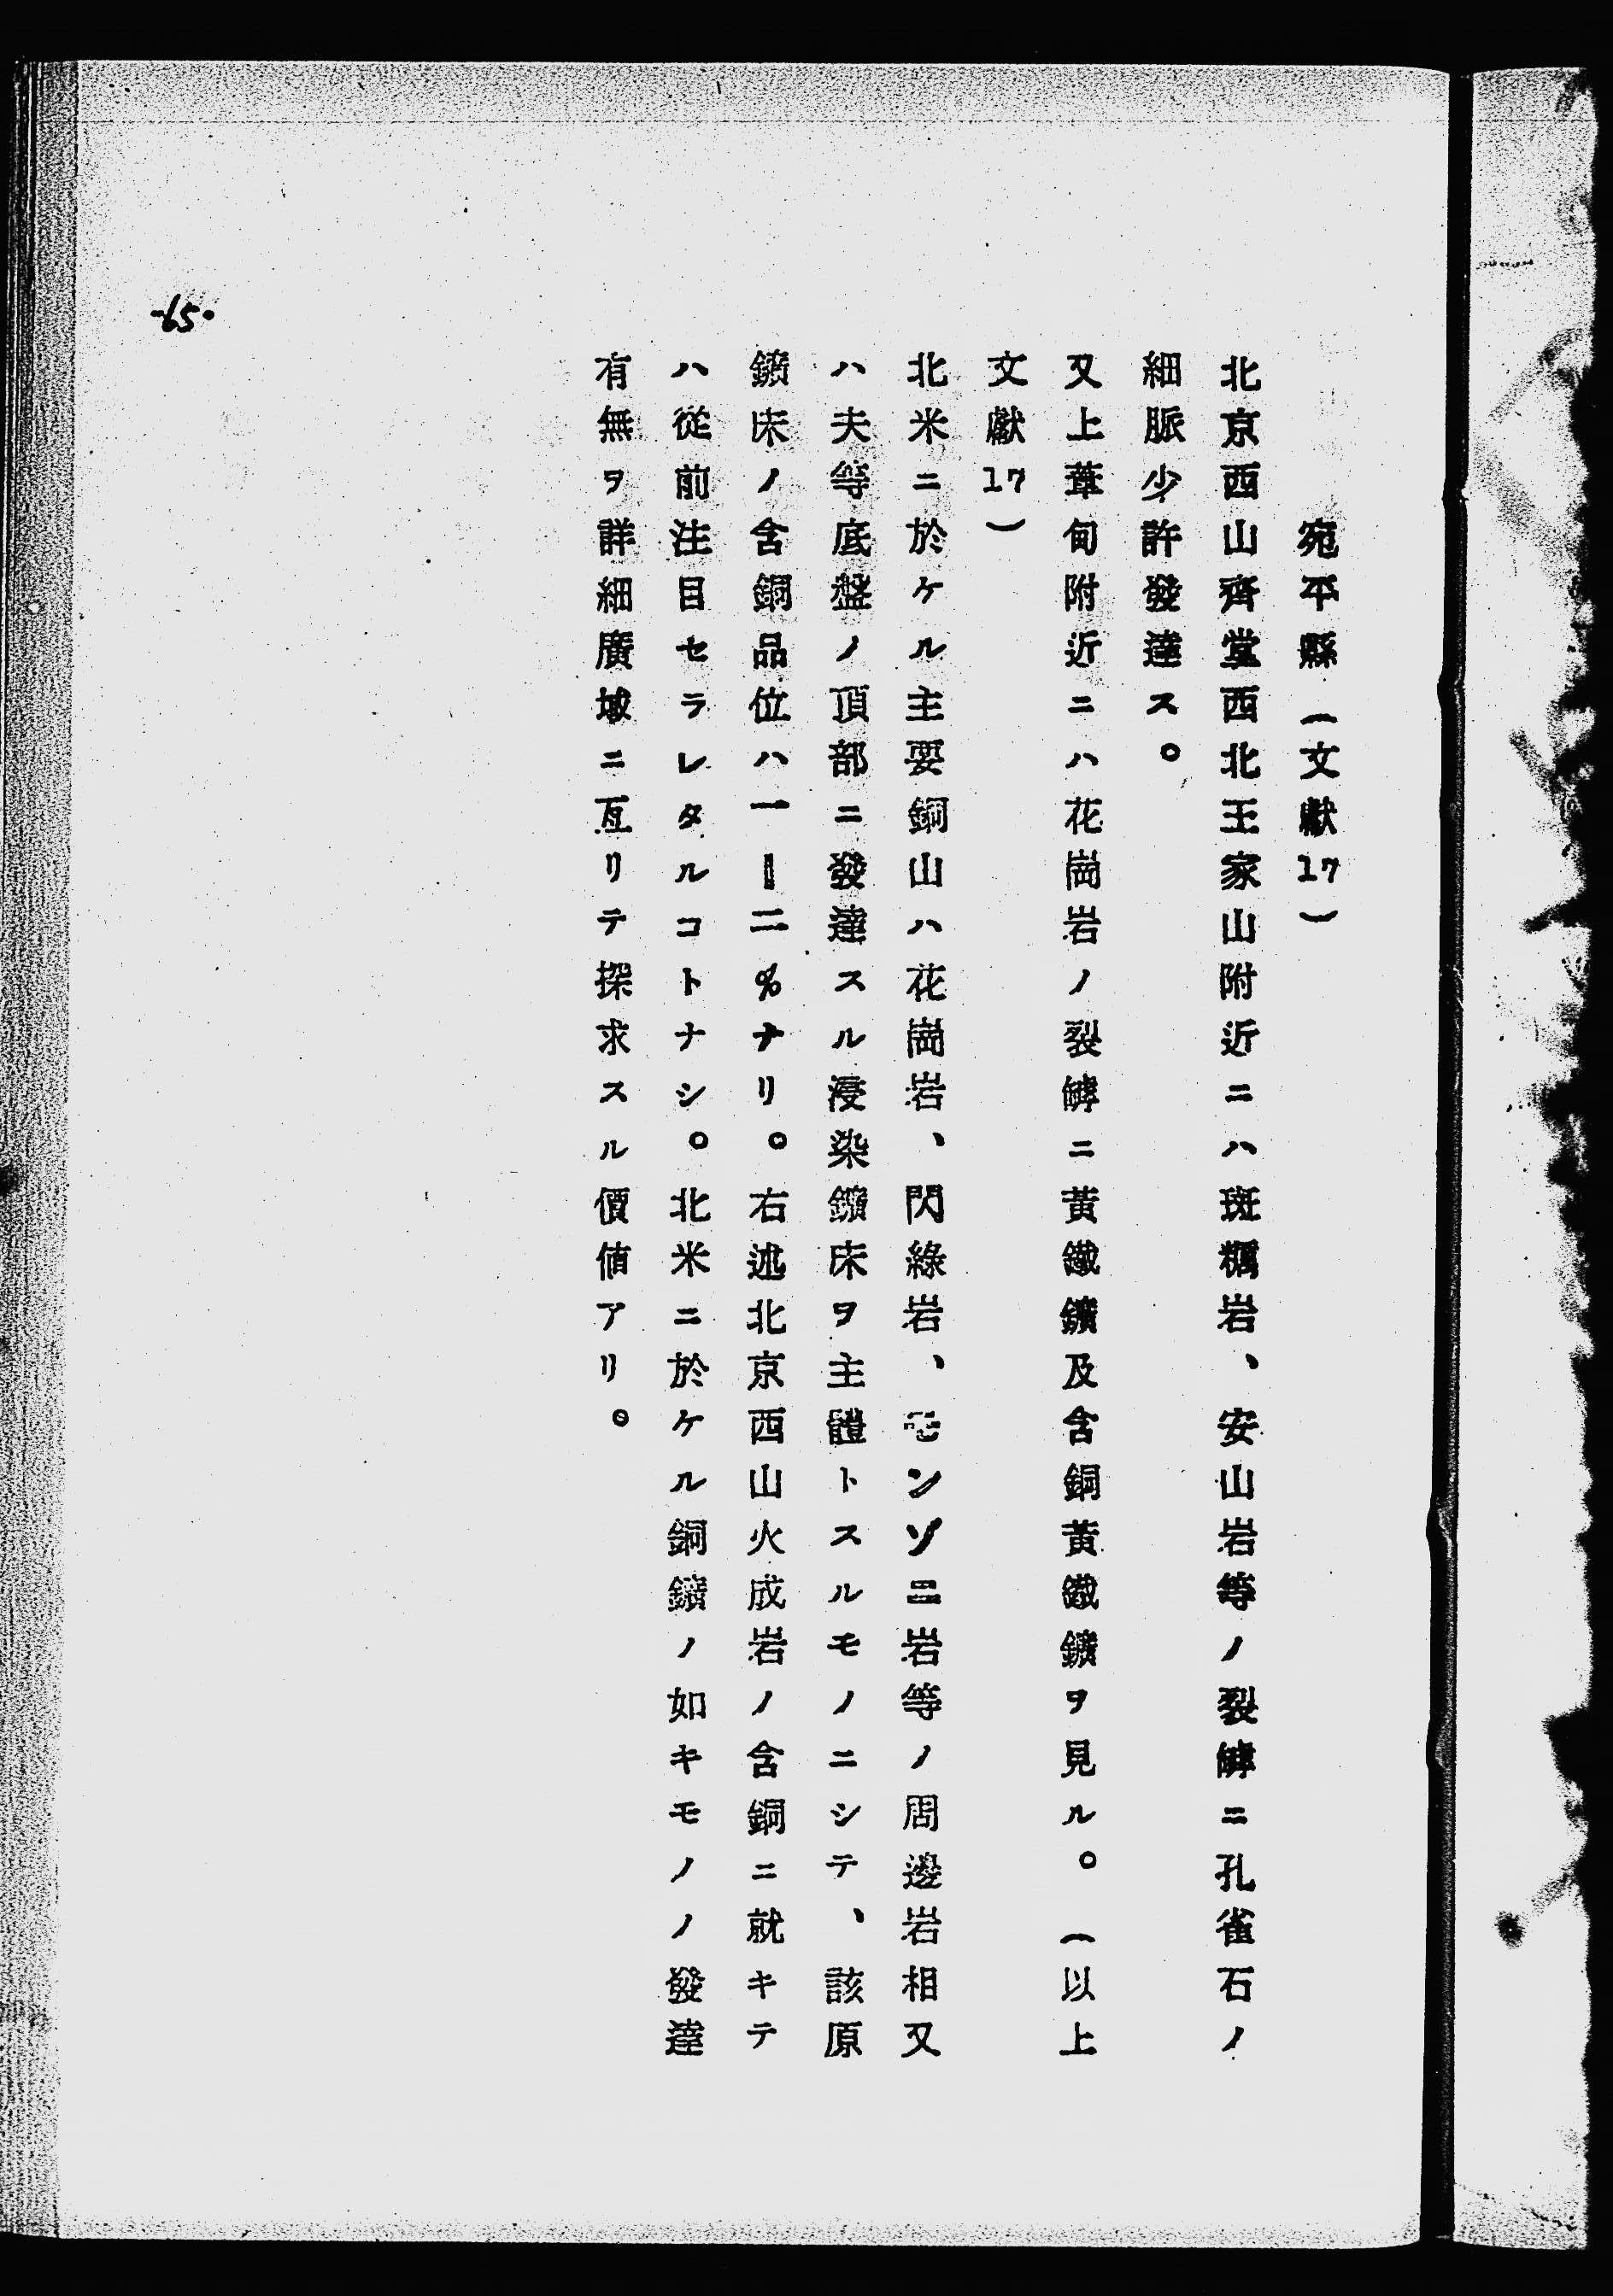 宛平縣(文獻17)
北京西山齊堂西北王家山附近ニハ斑糲岩、安山岩等ノ裂罅ニ孔雀石ノ
細脈少許發達ス。
又上葦甸附近ニハ花崗岩ノ裂罅ニ黃鐵鑛及含銅黃鐵鑛ヲ見ル。(以上
文獻17)
北米ニ於ケル主要銅山ハ花崗岩、閃綠岩、モンゾニ岩等ノ周邊岩相又
ハ夫等底盤ノ頂部ニ發達スル浸染鑛床ヲ主體トスルモノニシテ、該原
鑛床ノ含銅品位ハ一―二%ナリ。右述北京西山火成岩ノ含銅ニ就キテ
ハ從前注目セラレタルコトナシ。北米ニ於ケル銅鑛ノ如キモノノ發達
有無ヲ詳細廣域ニ亙リテ探求スル價値アリ。
-65-